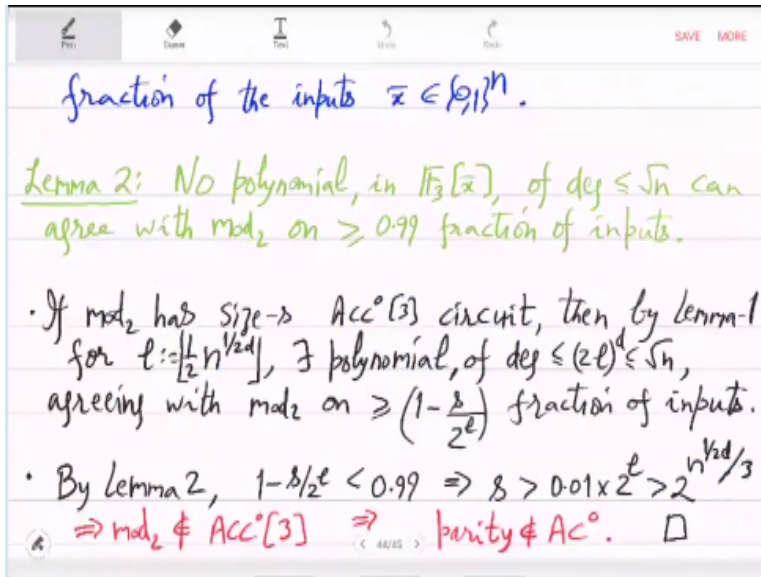 Pen Eraser Text Undo Redo SAVE MORE
fraction of the inputs x̄ ∈ {0,1}ⁿ.
Lemma 2: No polynomial, in 𝔽₃[x̄], of deg ≤ √n can
agree with mod₂ on ≥ 0.99 fraction of inputs.
· If mod₂ has size-s Acc⁰[3] circuit, then by Lemma-1
for ℓ:=⌊½ n^{1/2d}⌋, ∃ polynomial, of deg ≤ (2ℓ)^d ≤ √n,
agreeing with mod₂ on ≥ (1 - s/2^ℓ) fraction of inputs.
· By Lemma 2, 1-s/2^ℓ < 0.99 ⇒ s > 0.01 × 2^ℓ > 2^{n^{1/2d}/3}
⇒ mod₂ ∉ ACC⁰[3] ⇒ parity ∉ AC⁰. □
< 44/45 >